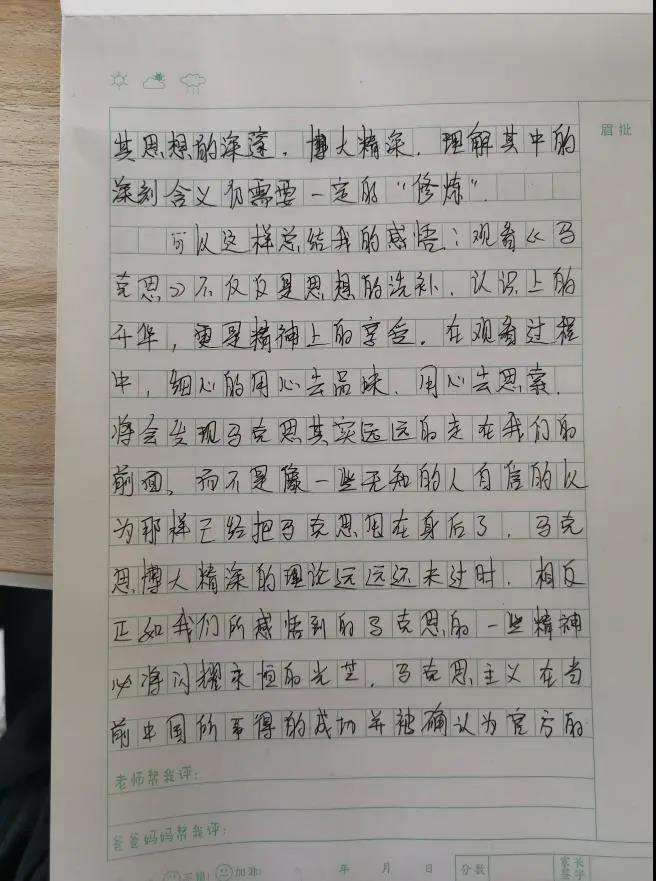 眉批
其思想的深邃，博大精深，理解其中的
深刻含义仍需要一定的“修炼”。
可以这样总结我的感悟：观看《马
克思》不仅仅是思想的洗补，认识上的
升华，更是精神上的享受。在观看过程
中，细心的用心去品味，用心去思索，
将会发现马克思其实远远的走在我们的
前面，而不是像一些无知的人自信的以
为那样已经把马克思甩在身后了，马克
思博大精深的理论远远还未过时，相反
正如我们所感悟到的马克思的一些精神
必将闪耀永恒的光芒，马克思主义在当
前中国所取得的成功并被确认为官方的
老师帮我评：
爸爸妈妈帮我评：
年 月 日 分数 家长